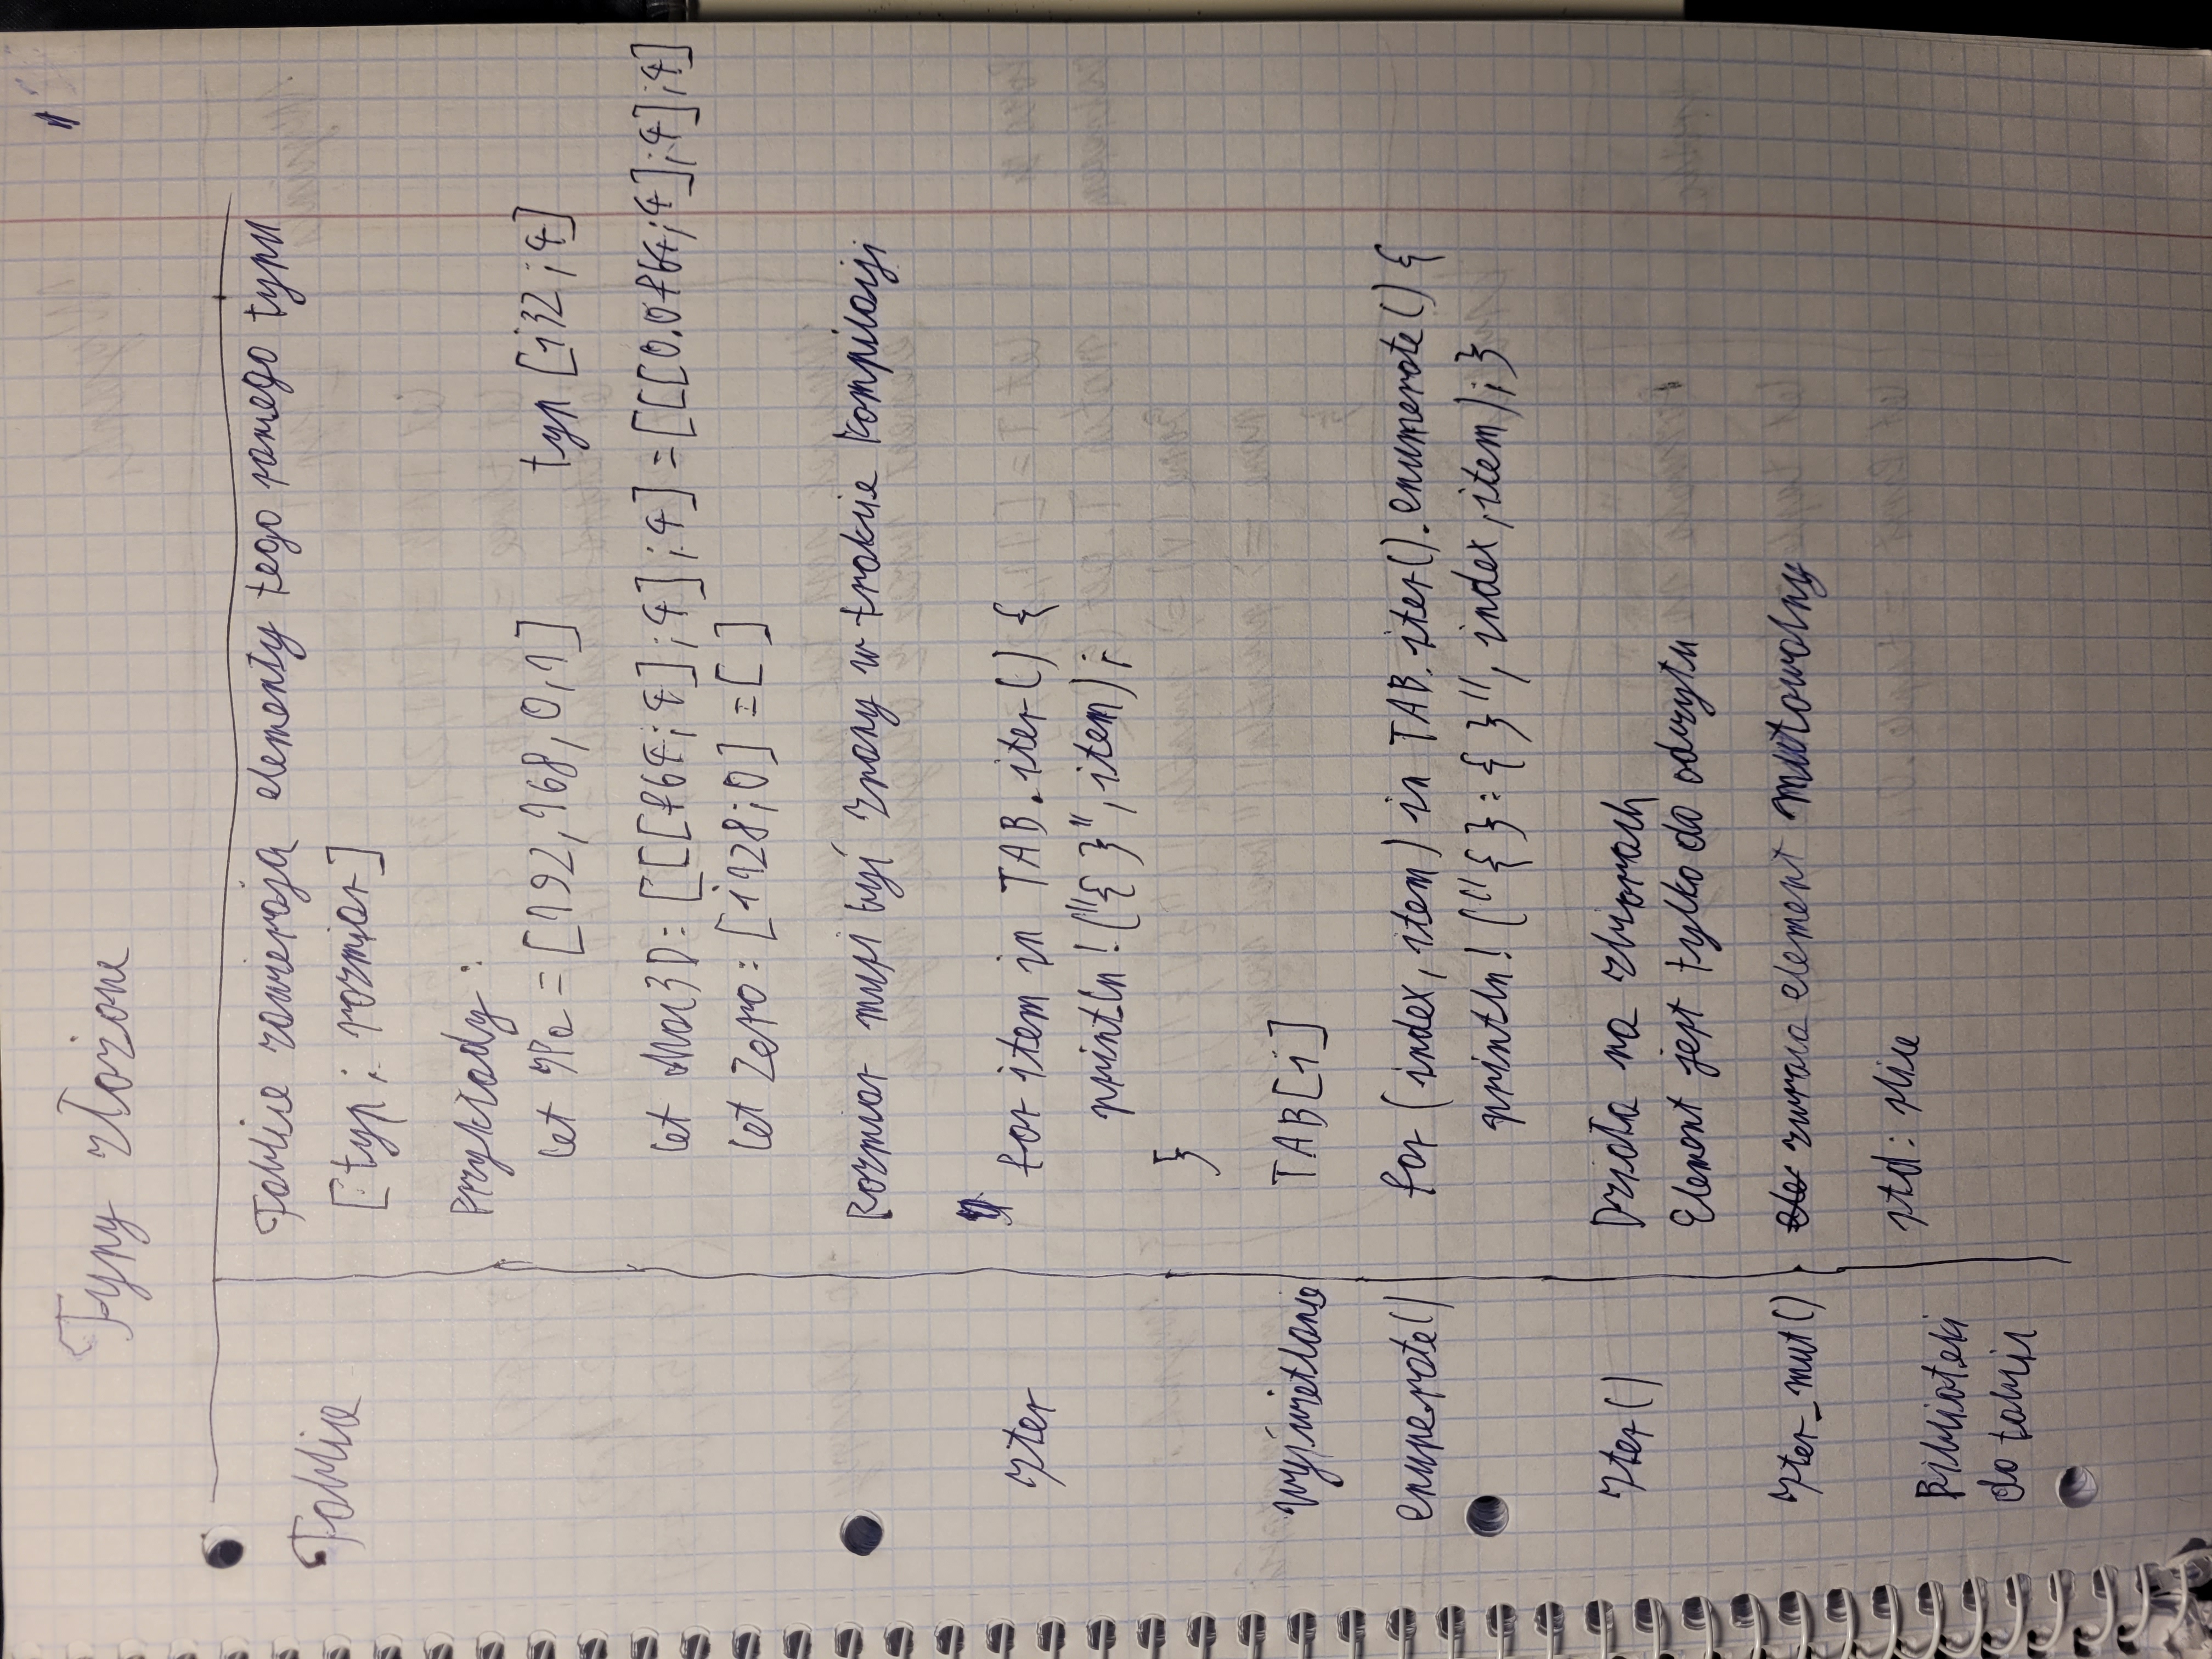 1
Typy złożone
Tablice
Tablice zawierają elementy tego samego typu
[typ; rozmiar]
Przykłady:
let IPa = [192,168,0,1] typ [i32;4]
let Mac3D: [[[f64;4];4];4] = [[[0.0f64;4];4];4]
let Zero: [i128;0] = [ ]
Rozmiar musi być znany w trakcie kompilacji
Iter
for item in TAB.iter() {
println!("{ }", item);
}
Wyświetlanie
TAB[i]
enumerate()
for (index, item) in TAB.iter().enumerate() {
println!("{ }: { }", index, item); }
Iter()
Działa na zbiorach
Element jest tylko do odczytu
Iter_mut()
ele zwraca element mutowalny
Biblioteki
do tablic
std: slice